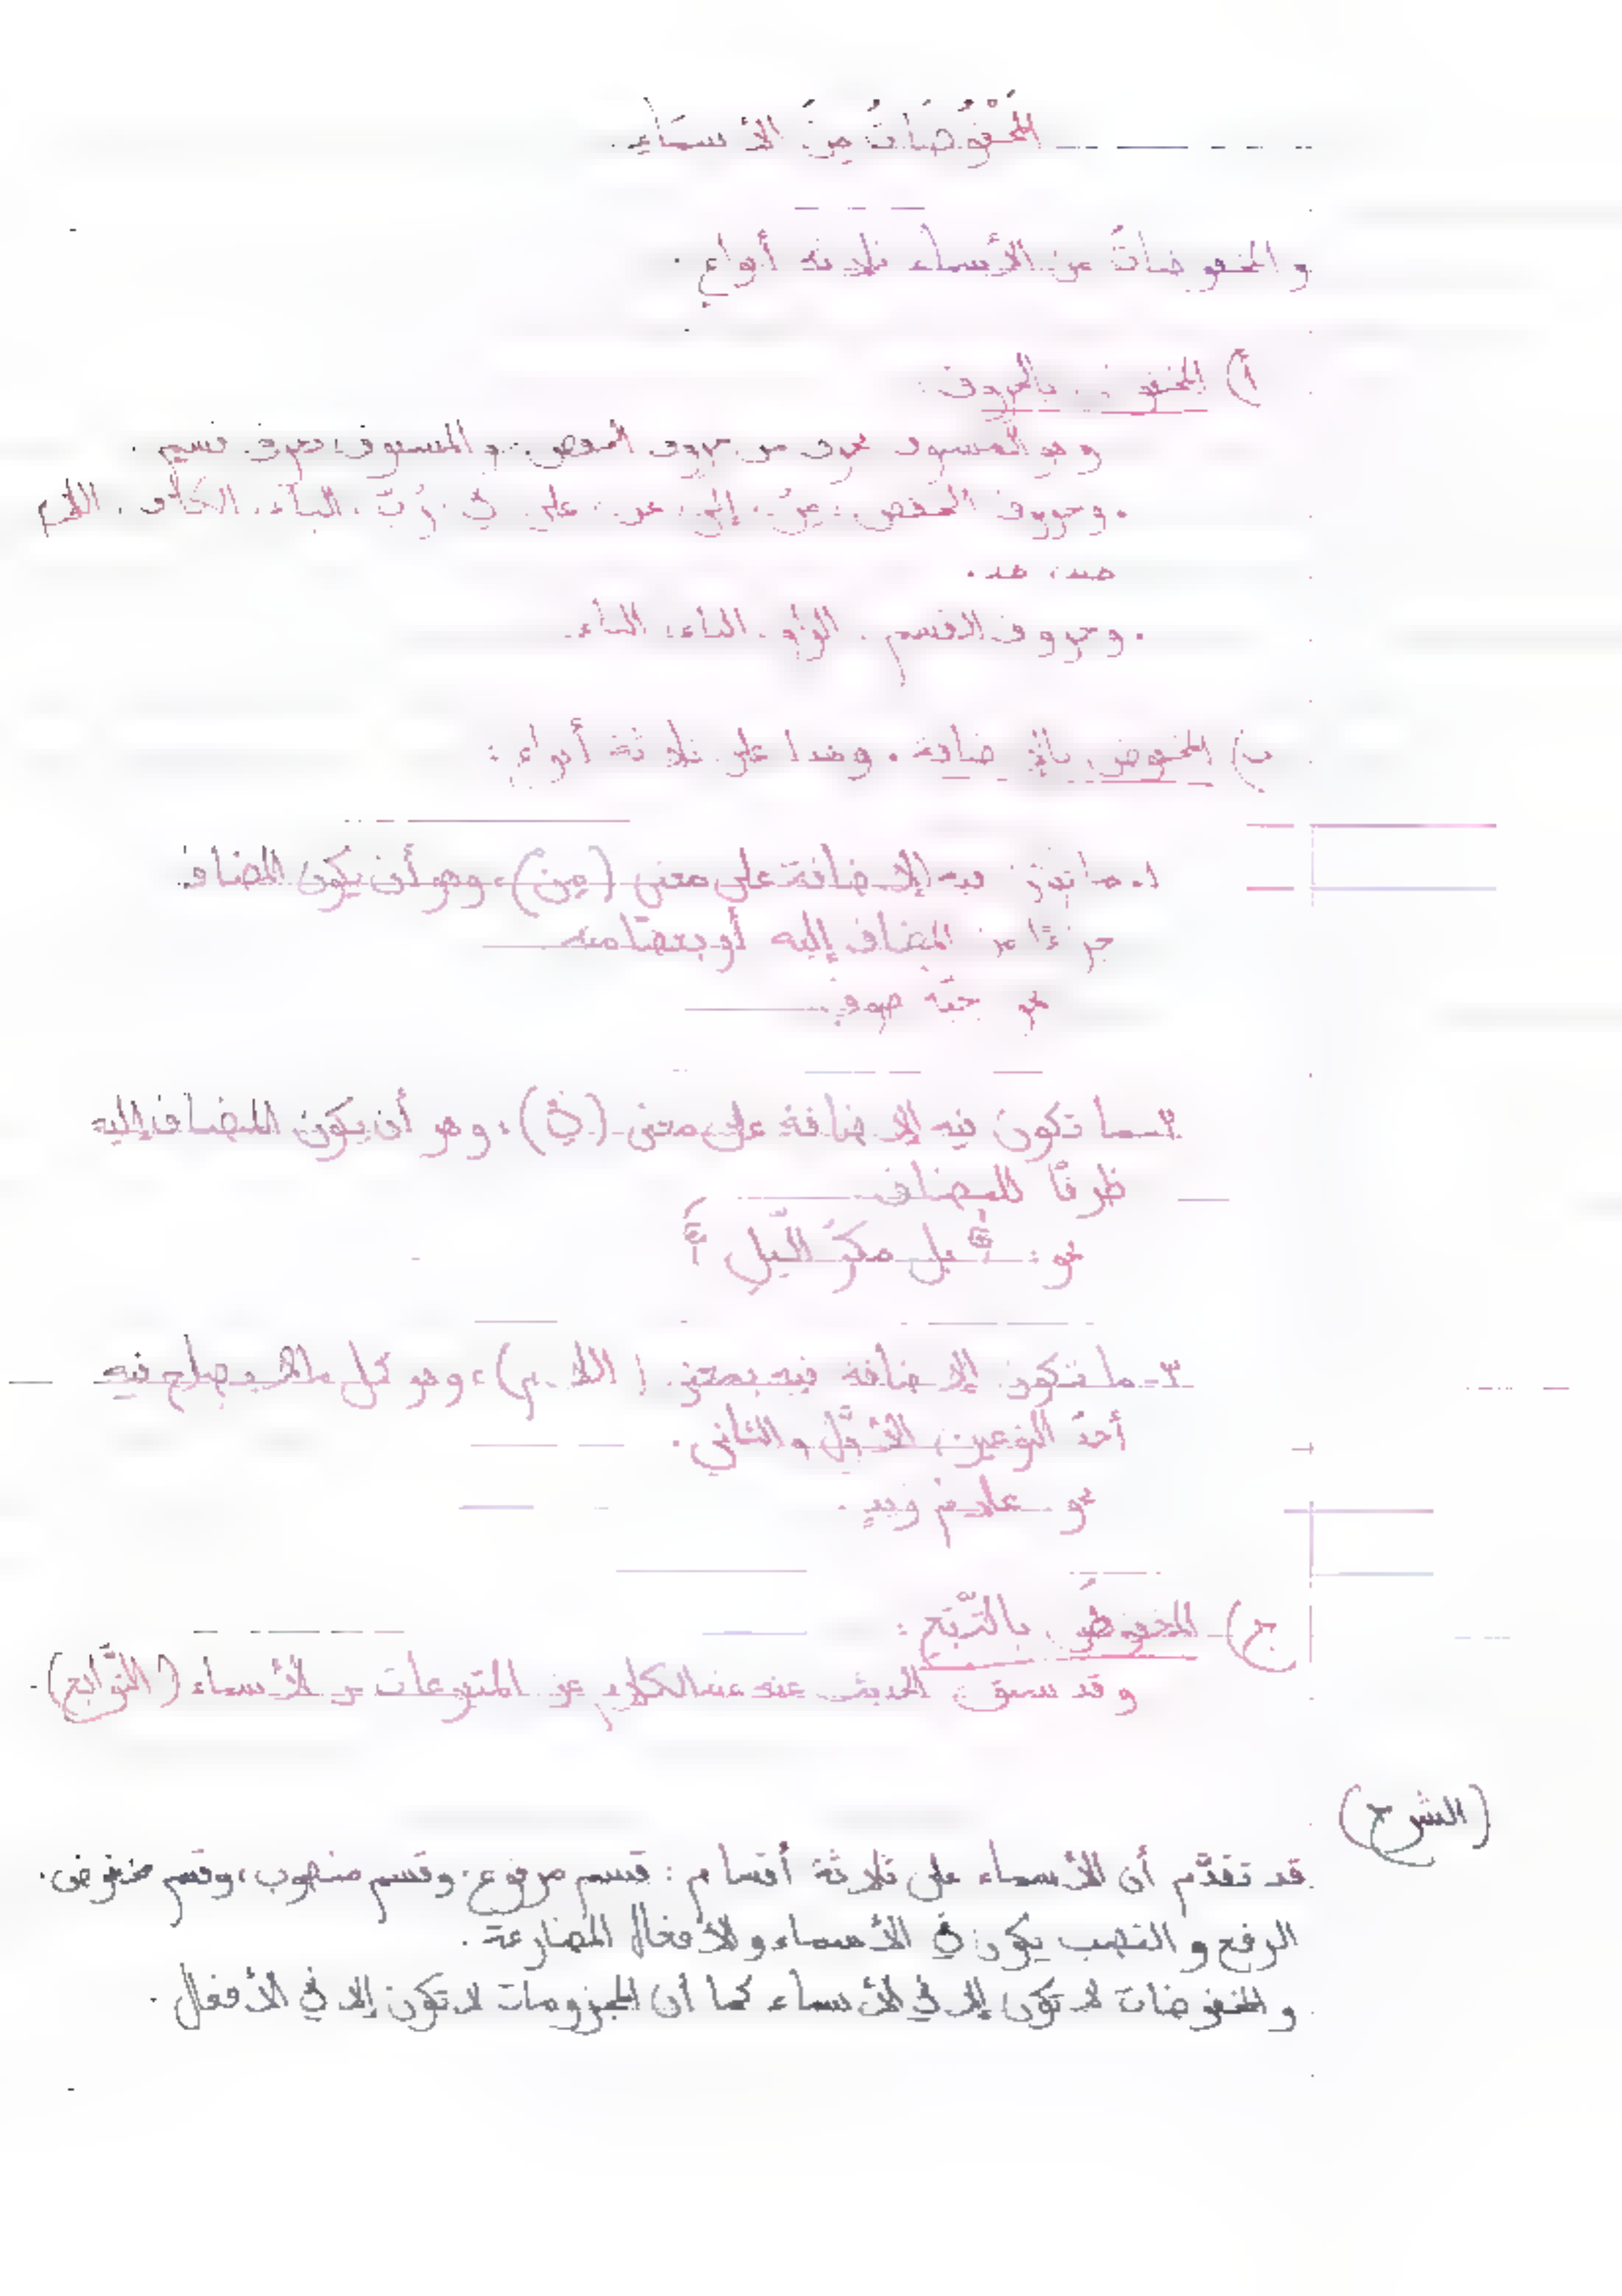 المَخْفُوضَاتُ مِنَ الأسمَاءِ.
و المخفوضاتُ من الأسماء ثلاثة أنواع.
أ) المخفوض بالحروف:
وهو المسبوق بحرف من حروف الخفض، و المسبوق بحرف قسم.
. وحروف الخفض: مِن، إلى، عن، على، في، رُبَّ، الباء، الكاف، اللام
منذ، مذ.
. وحروف القسم: الواو، الباء، التاء.
ب) المخفوض بالإضافة. وهذا على ثلاثة أنواع:
١. ما تكون فيه الإضافة على معنى (مِن)، وهو أن يكون المضاف
جزءًا من المضاف إليه أو بعضًا منه
نحو جبّة صوفٍ.
٢- ما تكون فيه الإضافة على معنى (في)، وهو أن يكون المضاف إليه
ظرفًا للمضاف
نحو: ﴿ بل مكرُ الَّيلِ ﴾
٣- ما تكون الإضافة فيه بمعنى (اللام)، وهو كل ما لا يصلح فيه
أحدُ النوعين، الأوَّل والثاني.
نحو غلامُ زيدٍ.
ج) المخفوضُ بالتّبَع:
وقد سبق الحديث عنه عند الكلام عن المتبوعات من الأسماء (التوّابع).
(الشرح)
قد تقدّم أن الأسماء على ثلاثة أقسام: قسم مرفوع، وقسم منصوب، وقسم مخفوض.
الرفع و النصب يكون في الأسماء و الأفعال المضارعة.
و المخفوضات لا تكون إلا في الأسماء كما أن المجزومات لا تكون إلا في الأفعال.